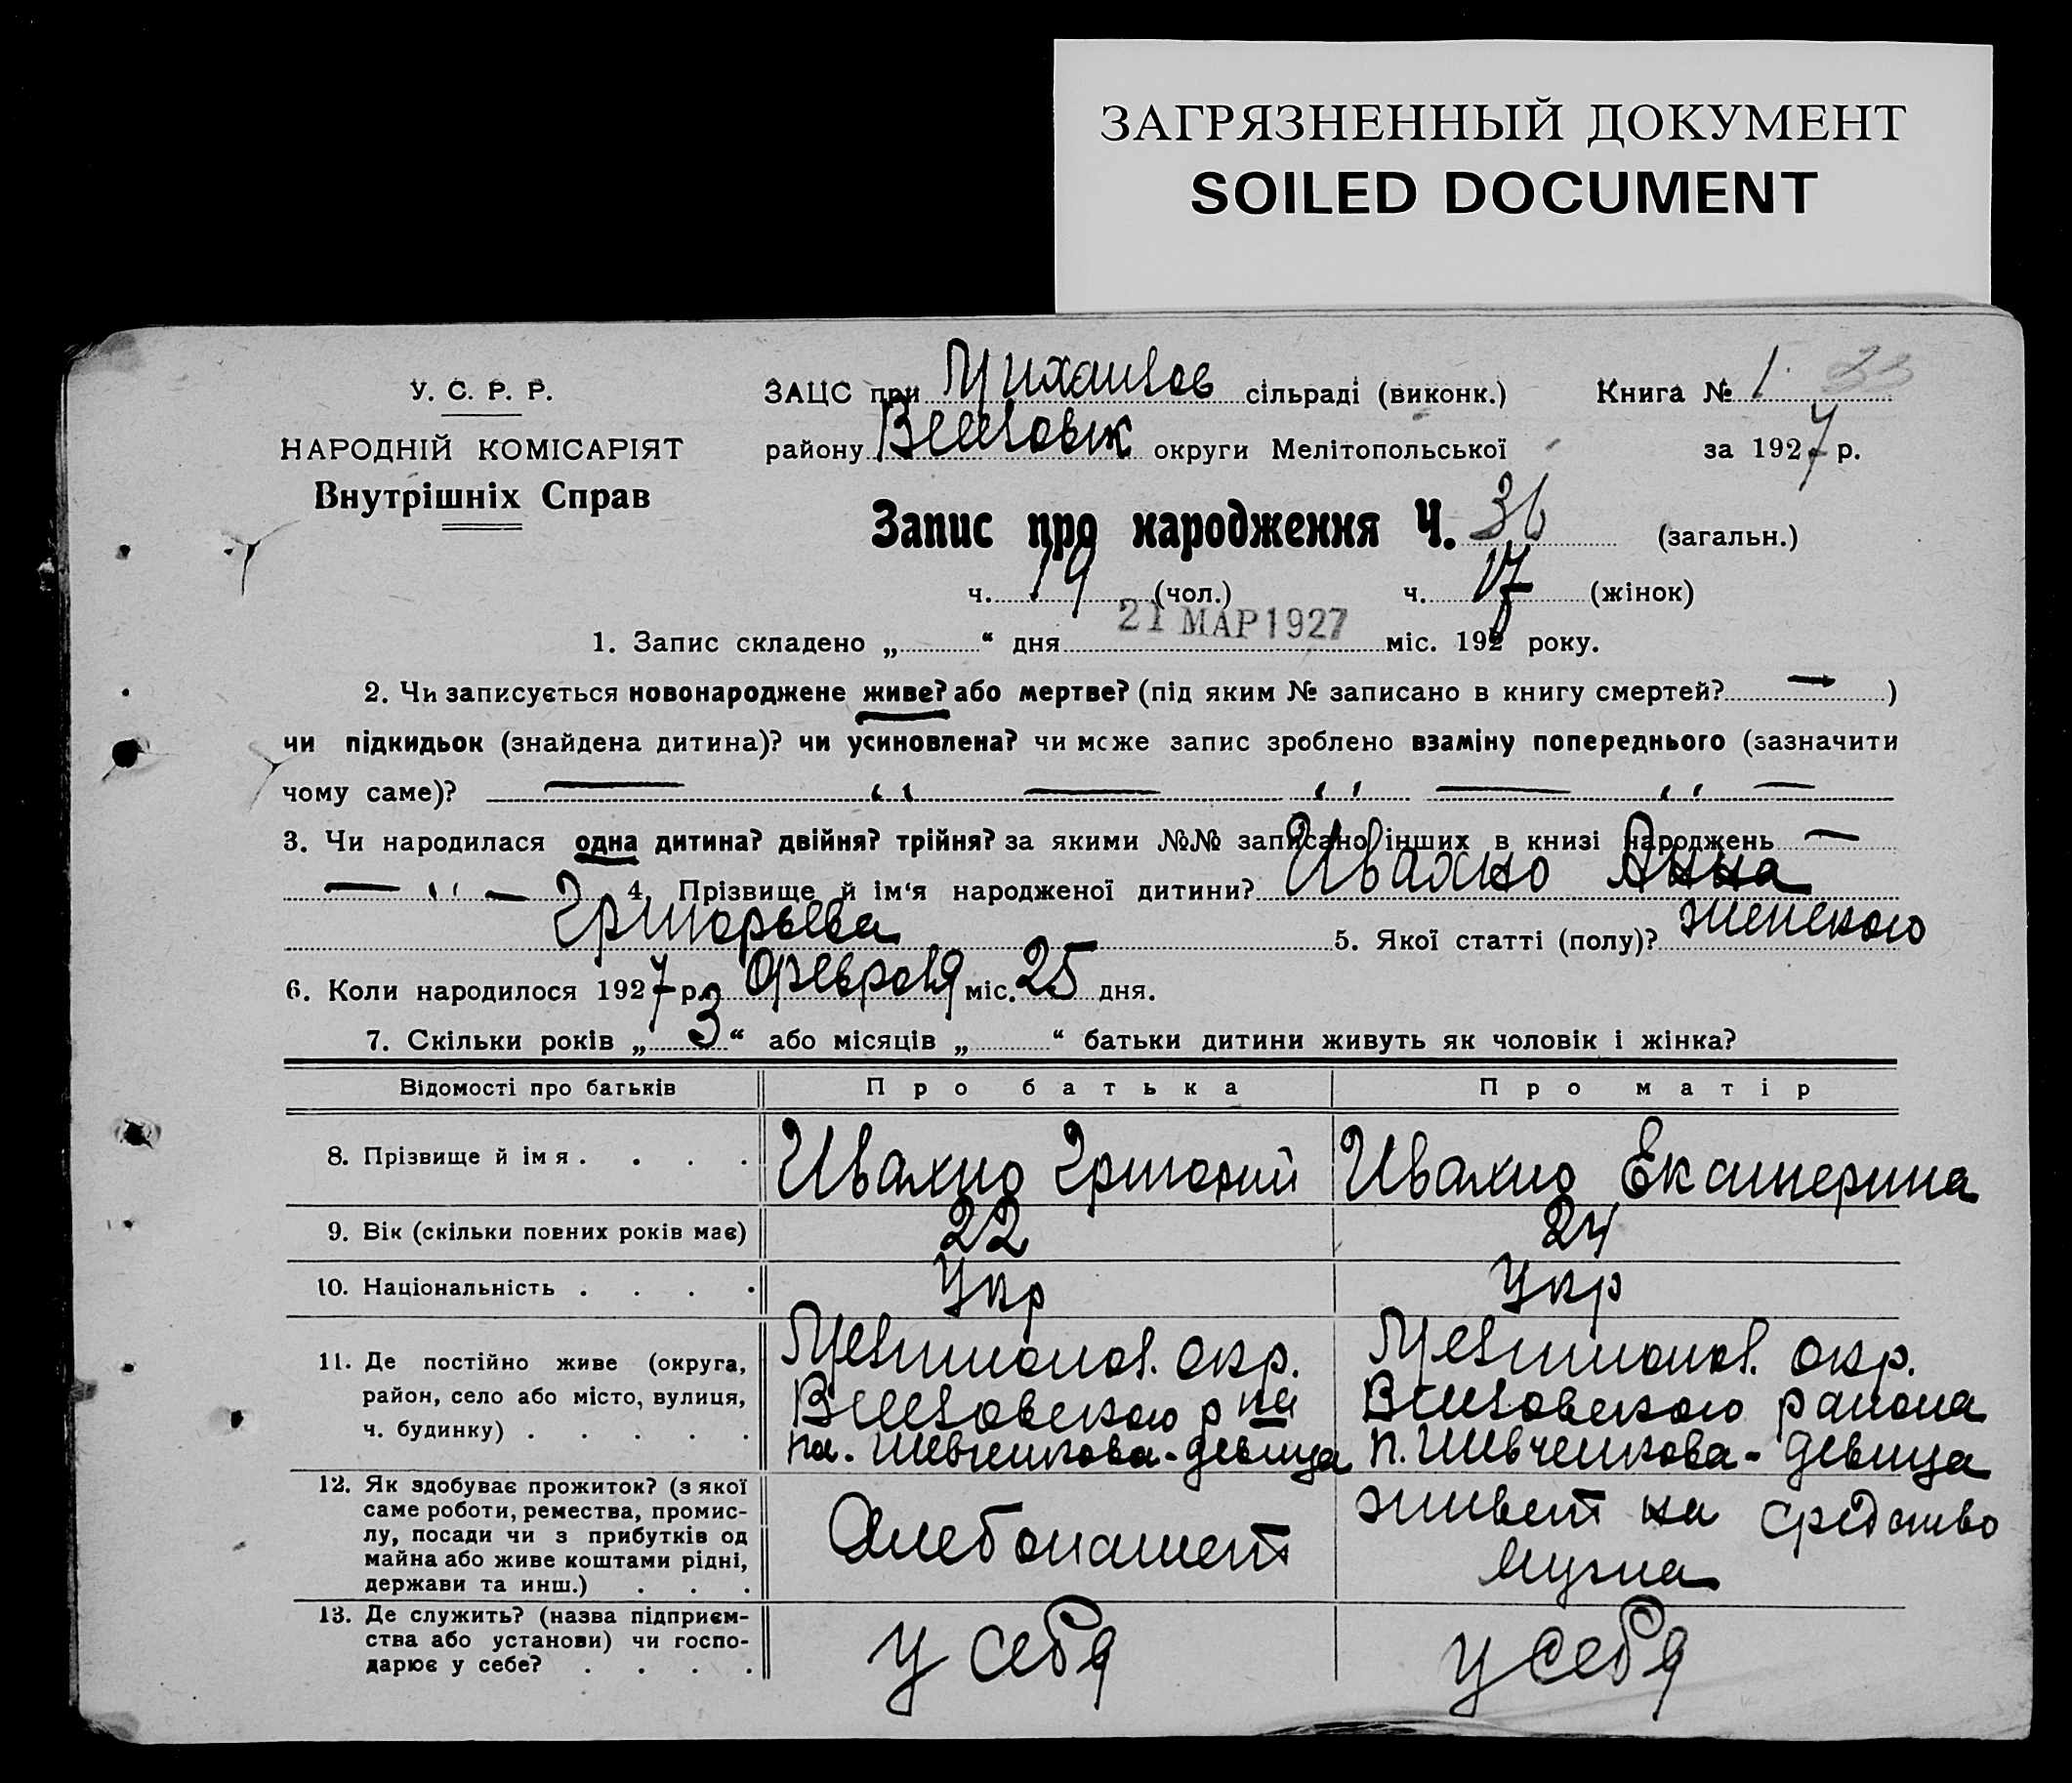 ЗАГРЯЗНЕННЫЙ ДОКУМЕНТ
SOILED DOCUMENT
У. С. Р. Р.
НАРОДНІЙ КОМІСАРІЯТ
Внутрішніх Справ
ЗАЦС при Михайлов сільраді (виконк.)
району Веселовск округи Мелітопольської
Книга № 1. 33
за 1927 р.
Запис про народження Ч. 36 (загальн.)
ч. 19 (чол.) ч. 17 (жінок)
1. Запис складено „ “ дня 21 МАР 1927 міс. 1927 року.
2. Чи записується новонароджене живе? або мертве? (під яким № записано в книгу смертей? — )
чи підкидьок (знайдена дитина)? чи усиновлена? чи може запис зроблено взаміну попереднього (зазначити
чому саме)? — „ — „ — „ —
3. Чи народилася одна дитина? двійня? трійня? за якими №№ записано інших в книзі народжень —
— „ — 4. Прізвище й ім‘я народженої дитини? Ивахно Анна
Григорьева 5. Якої статті (полу)? женского
6. Коли народилося 1927 р. февраля міс. 25 дня.
7. Скільки років „ 3 “ або місяців „ “ батьки дитини живуть як чоловік і жінка?
Відомості про батьків Про батька Про матір
8. Прізвище й імя . . . . Ивахно Григорий Ивахно Екатерина
9. Вік (скільки повних років має) 22 24
10. Національність . . . . Укр Укр
11. Де постійно живе (округа, Мелитопол. окр. Мелитопол. окр.
район, село або місто, вулиця, Веселовского р на Веселовского района
ч. будинку) . . . . . по. Шевченкова-девица п. Шевченкова-девица
12. Як здобуває прожиток? (з якої
саме роботи, ремества, промис-
лу, посади чи з прибутків од
майна або живе коштами рідні,
держави та инш.) . . .
Хлебопашест
живет на средство
мужа
13. Де служить? (назва підприєм-
ства або установи) чи госпо-
дарює у себе? . . . .
у себя у себя